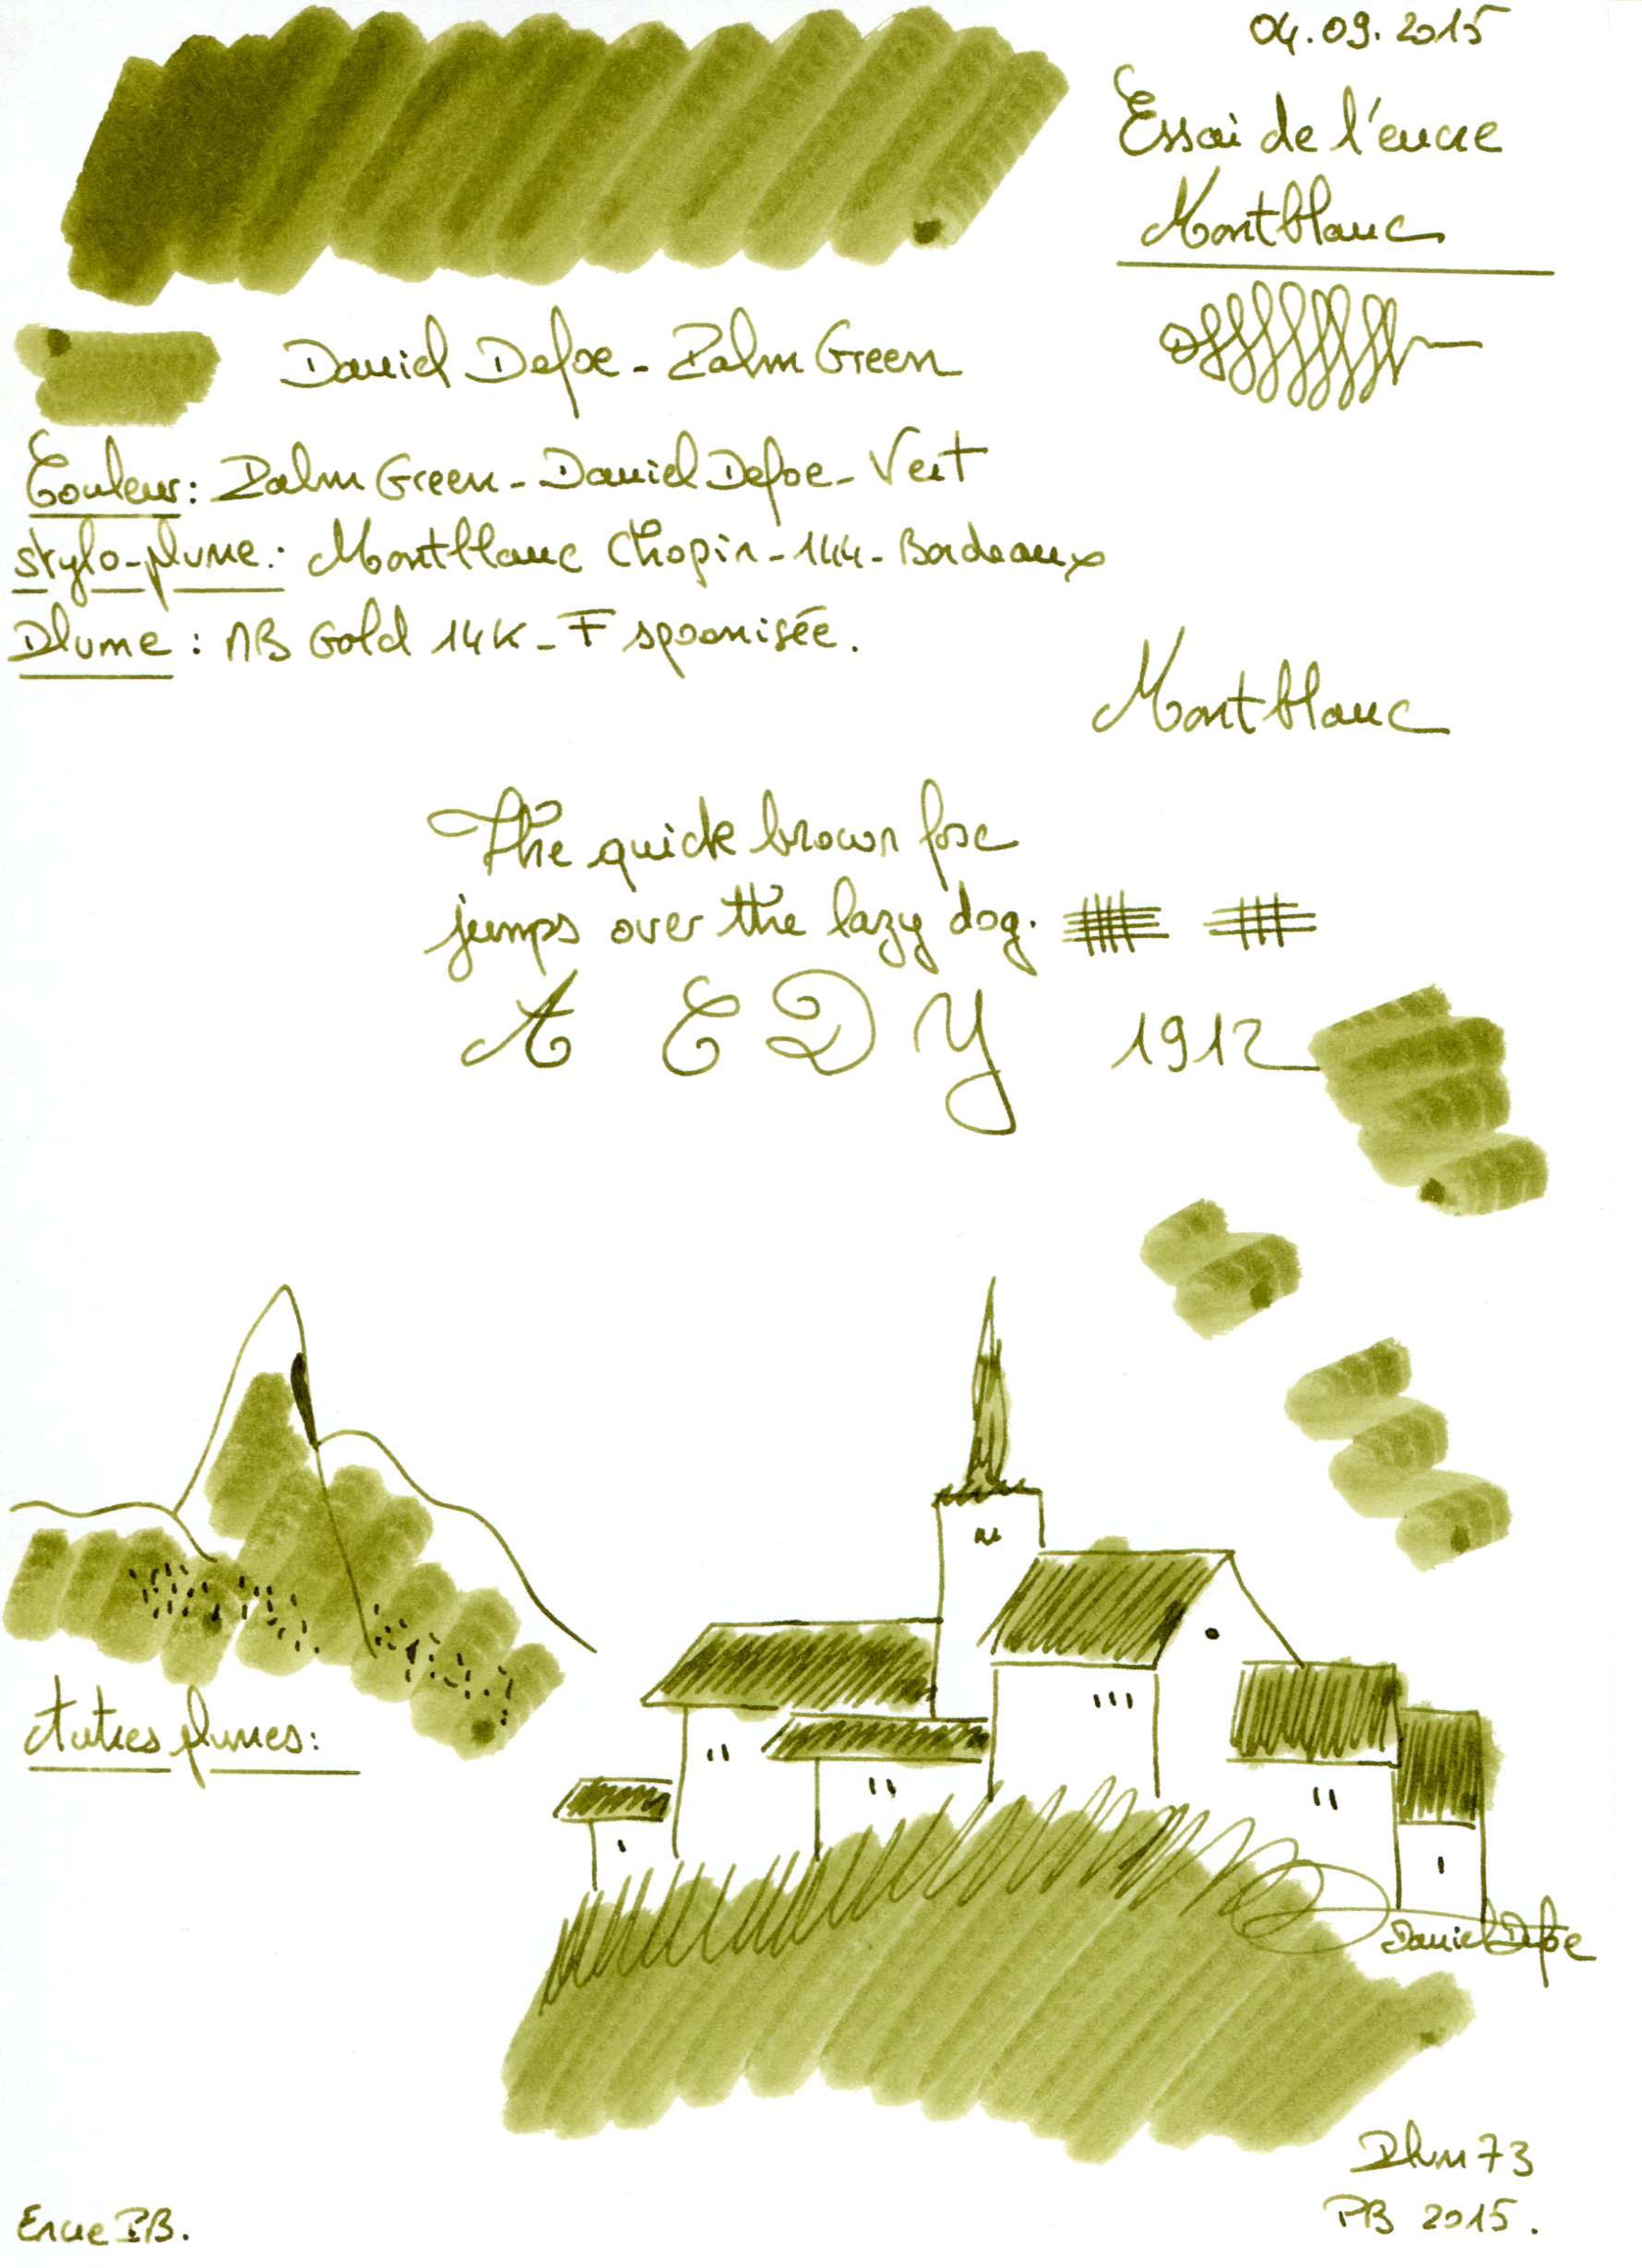 04.09.2015
Essai de l'encre
Montblanc
Daniel Defoe - Palm Green
Couleur: Palm Green - Daniel Defoe - Vert
stylo-plume: Montblanc Chopin - 144 - Bordeaux
Plume: MB Gold 14K - F spoonisée.
Montblanc
The quick brown fox
jumps over the lazy dog.
A E D Y 1912
Autres plumes:
Daniel Defoe
Plum73
PB 2015.
Encre PB.